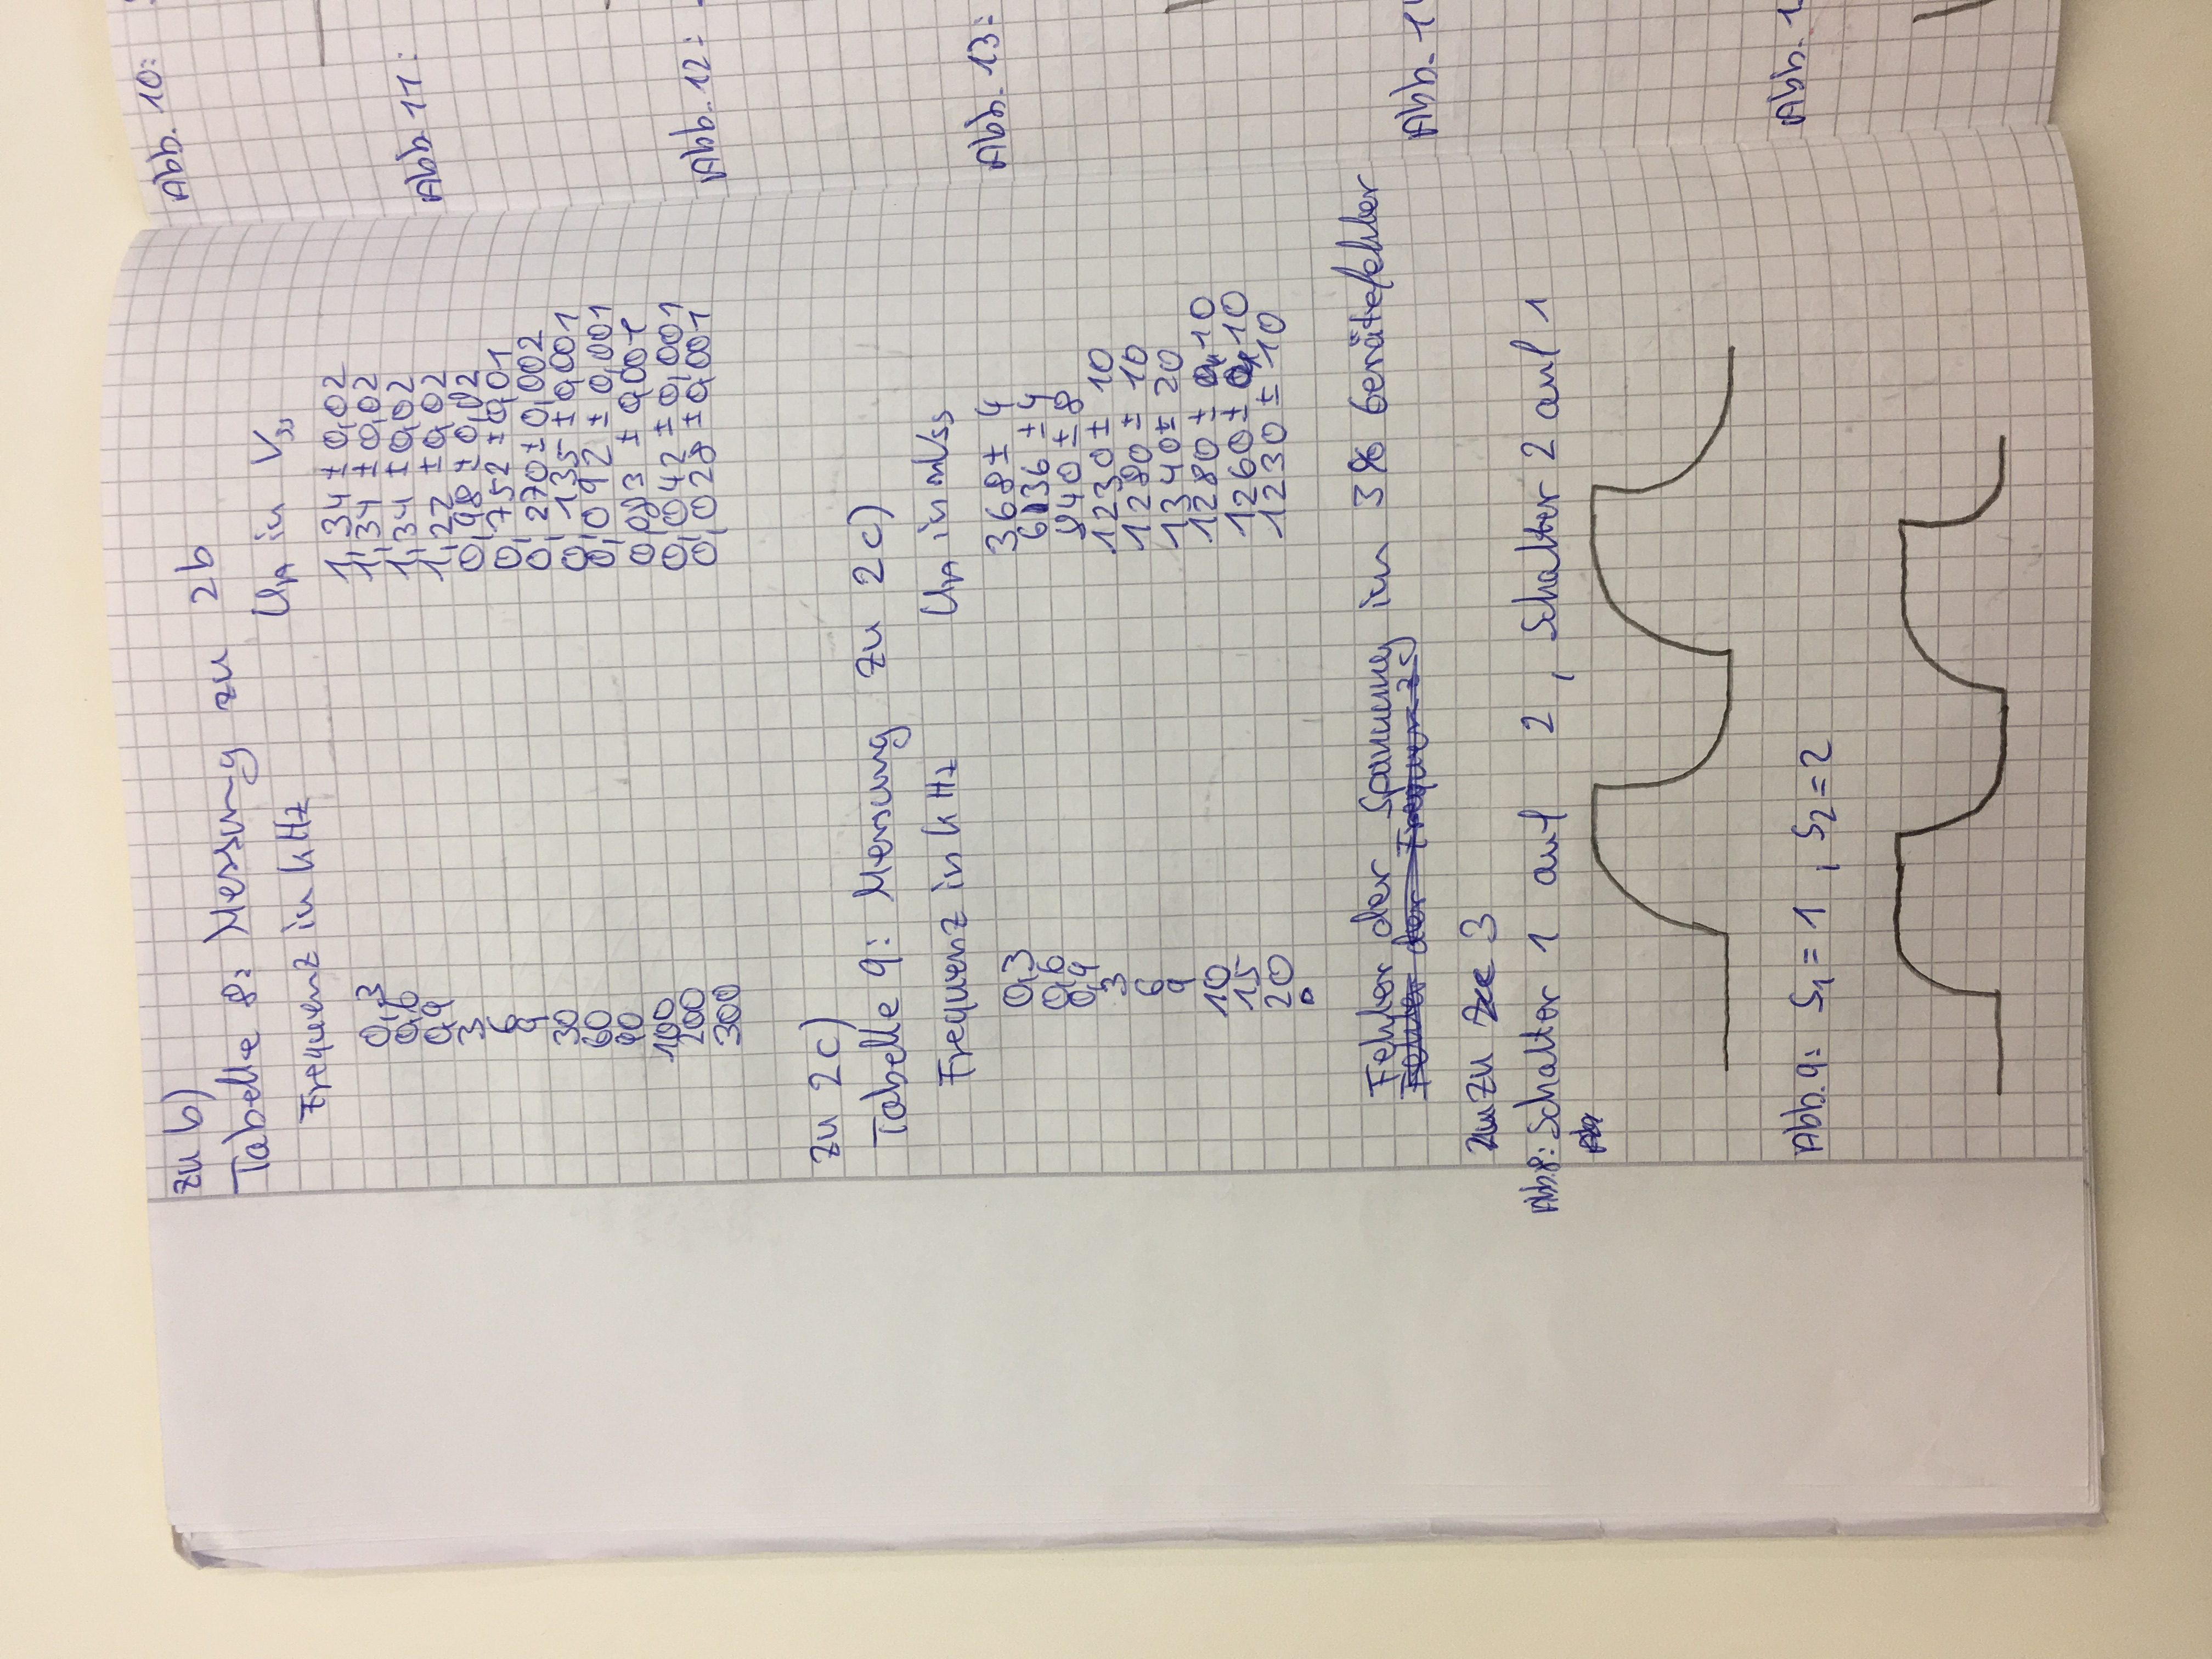 zu b)
Tabelle 8: Messung zu 2b
Frequenz in kHz U_A in V_ss
0,3 1,34 ± 0,02
0,6 1,34 ± 0,02
0,9 1,34 ± 0,02
3 1,22 ± 0,02
6 0,98 ± 0,02
9 0,752 ± 0,01
30 0,270 ± 0,002
60 0,135 ± 0,001
90 0,092 ± 0,001
100 0,083 ± 0,001
200 0,042 ± 0,001
300 0,028 ± 0,001
zu 2c)
Tabelle 9: Messung zu 2c)
Frequenz in kHz U_A in mVss
0,3 368 ± 4
0,6 636 ± 4
0,9 840 ± 8
3 1230 ± 10
6 1280 ± 10
9 1340 ± 20
10 1280 ± 10
15 1260 ± 10
20 1230 ± 10
Fehler der Spannung in 3% Gerätefehler
Fehler der Frequenz
zu 3
Abb.8: Schalter 1 auf 2, Schalter 2 auf 1
Abb.9: S1 = 1, S2 = 2
Abb. 10:
Abb 11:
Abb. 12:
Abb. 13:
Abb. 1
Abb. 1